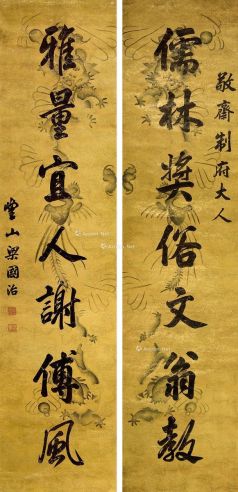 敬齋制府大人
儒林奬俗文翁教
雅量宜人謝傅風
豐山梁國治